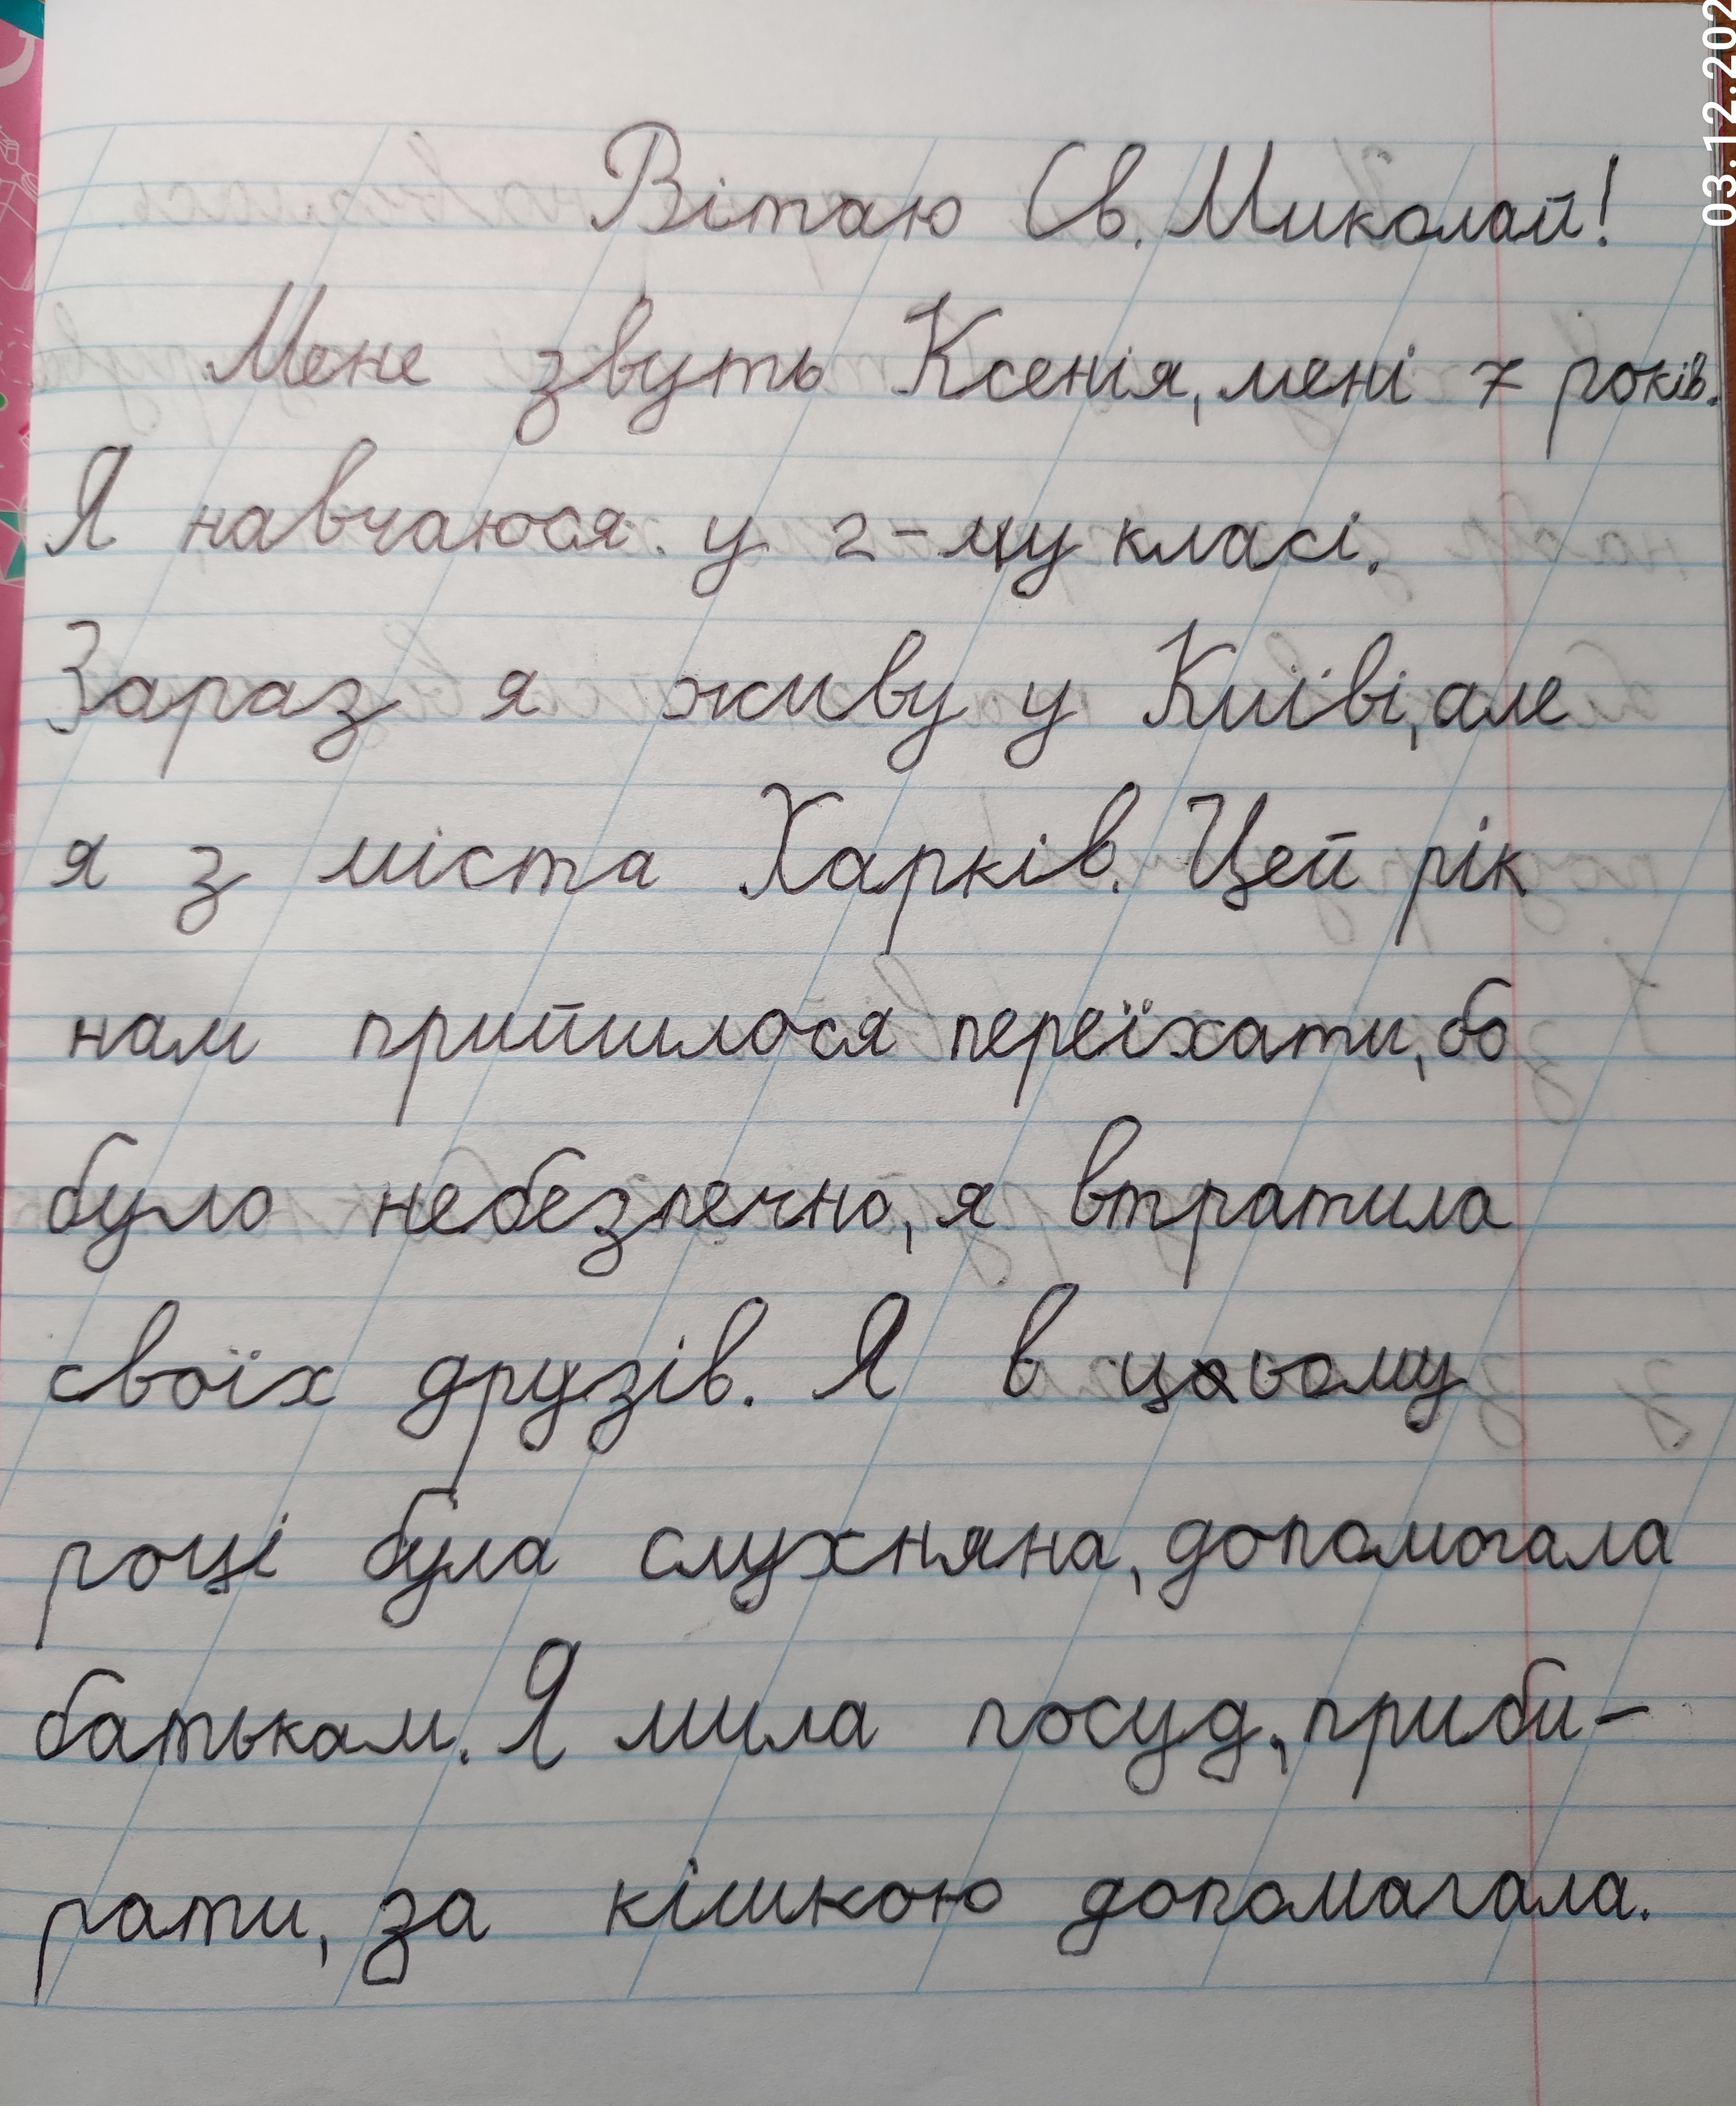 Вітаю Св. Миколай!
Мене звуть Ксенія, мені 7 років.
Я навчаюся у 2-му класі.
Зараз я живу у Київі, але
я з міста Харків. Цей рік
нам прийшлося переїхати, бо
було небезпечно, я втратила
своїх друзів. Я в цьому
році була слухняна, допомогала
батькам. Я мила посуд, приби-
рати, за кішкою допомагала.
03.12.202